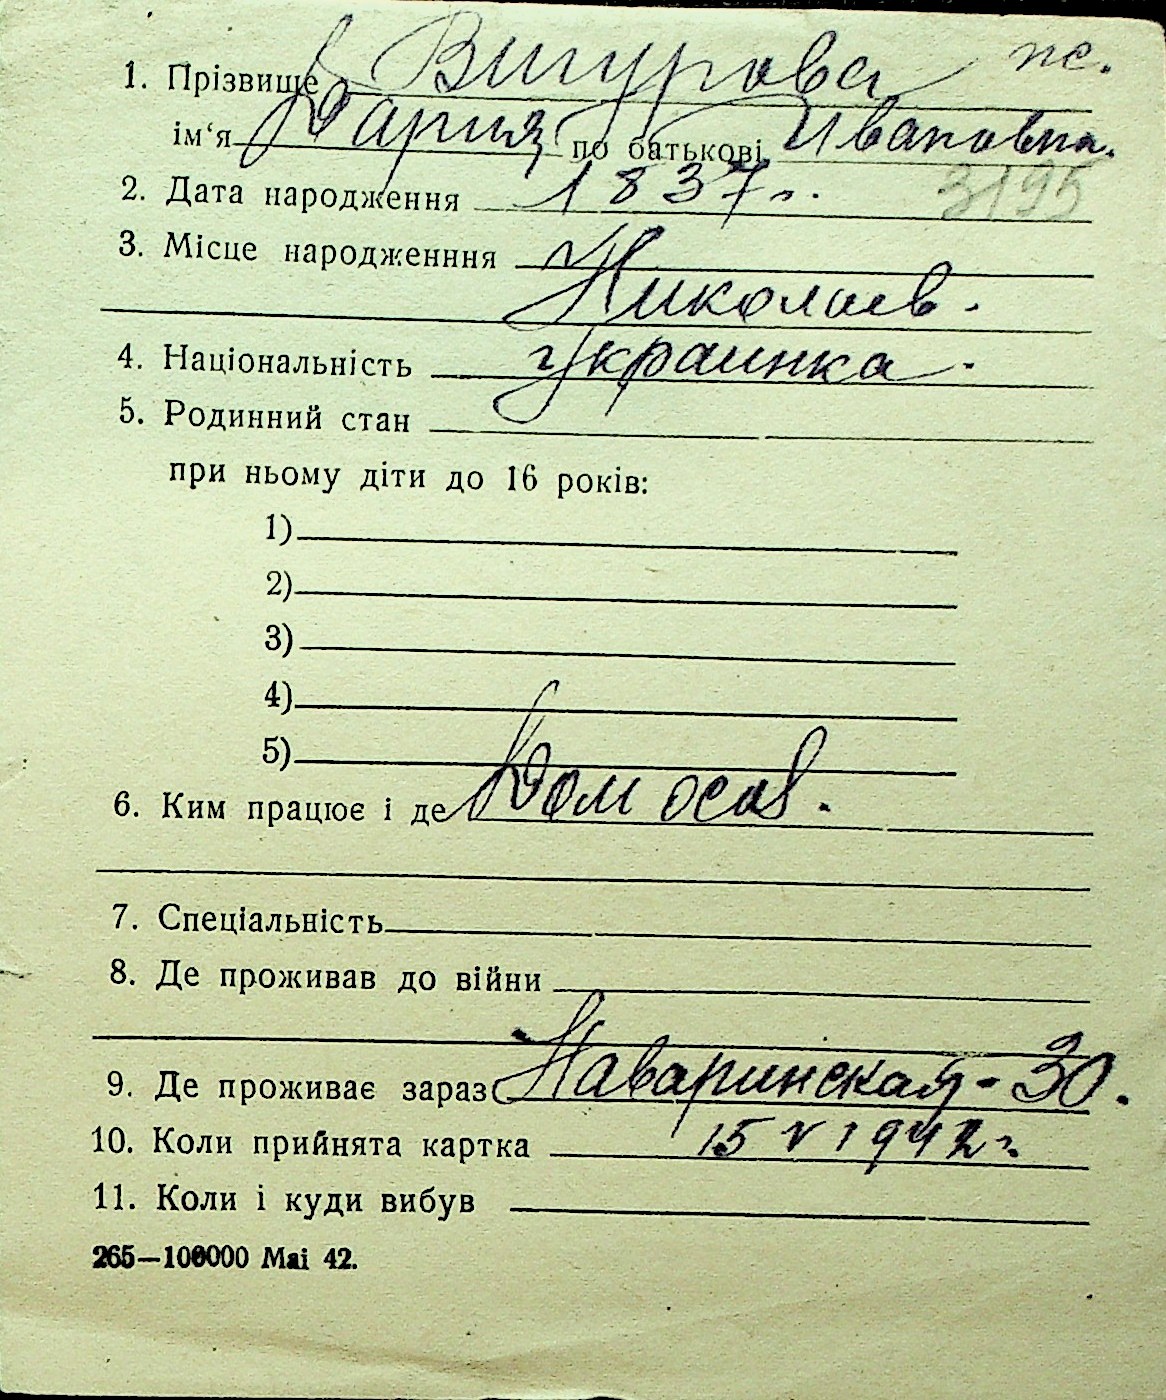 1. Прізвище Вигурова пс.
ім‘я Дария по батькові Ивановна.
2. Дата народження 1837 г. 3195
3. Місце народженння
Николаев.
4. Національність украинка.
5. Родинний стан
при ньому діти до 16 років:
1)
2)
3)
4)
5)
6. Ким працює і де Дом осоv.
7. Спеціальність
8. Де проживав до війни
9. Де проживає зараз Наваринская - 30.
10. Коли прийнята картка 15 V 1942 г.
11. Коли і куди вибув
265—100000 Mai 42.